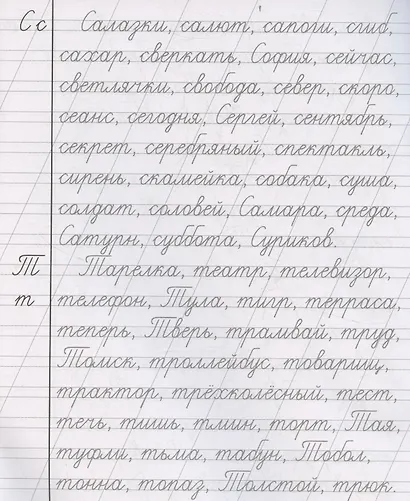 Сс Салазки, салют, сапоги, сгиб,
сахар, сверкать, София, сейчас,
светлячки, свобода, север, скоро,
сеанс, сегодня, Сергей, сентябрь,
секрет, серебряный, спектакль,
сирень, скамейка, собака, суша,
солдат, соловей, Самара, среда,
Сатурн, суббота, Суриков.
Т Тарелка, театр, телевизор,
т телефон, Тула, тигр, терраса,
теперь, Тверь, трамвай, труд,
Томск, троллейбус, товарищ,
трактор, трёхколёсный, тест,
течь, тишь, тмин, торт, Тая,
туфли, тьма, табун, Тобол,
тонна, топаз, Толстой, трюк.